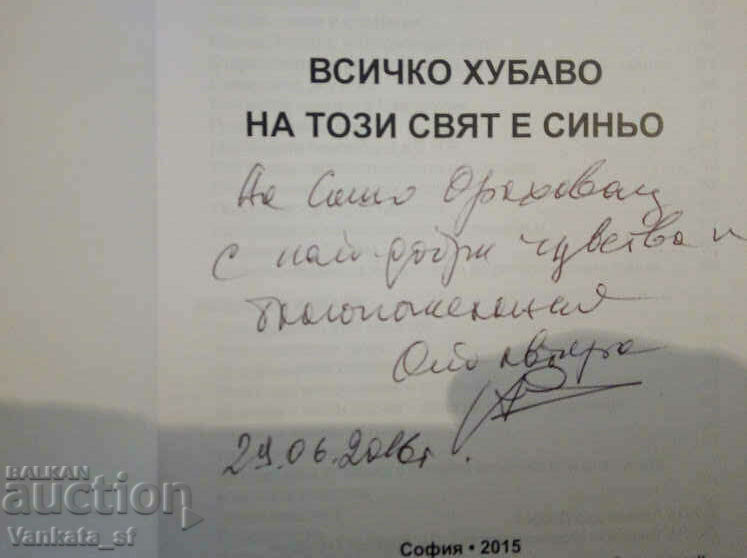 ВСИЧКО ХУБАВО
НА ТОЗИ СВЯТ Е СИНЬО
На Сашо Ораховац
с най-добри чувства и
благопожелания
От автора
29.06.2016г.
BALKAN
auction
Vankata_sf
София • 2015